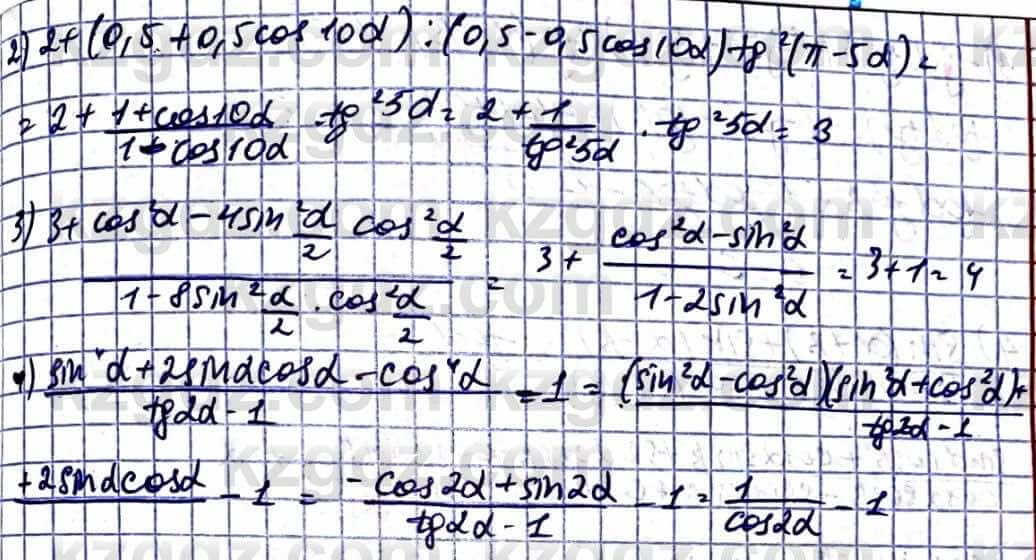 2) 2+(0,5+0,5cos10α):(0,5-0,5cos10α)tg²(π-5α)=
= 2 + (1+cos10α)/(1-cos10α) tg²5α = 2 + 1/(tg²5α) · tg²5α = 3
3) 3 + (cos²α - 4sin²α/2 cos²α/2)/(1-8sin²α/2 · cos²α/2) = 3 + (cos²α - sin²α)/(1-2sin²α) = 3+1 = 4
4) (sin⁴α + 2sinαcosα - cos⁴α)/(tg2α - 1) - 1 = ((sin²α - cos²α)(sin²α + cos²α)+)/(tg2α - 1)
(+2sinαcosα) - 1 = (-cos2α + sin2α)/(tg2α - 1) - 1 = 1/(cos2α) - 1